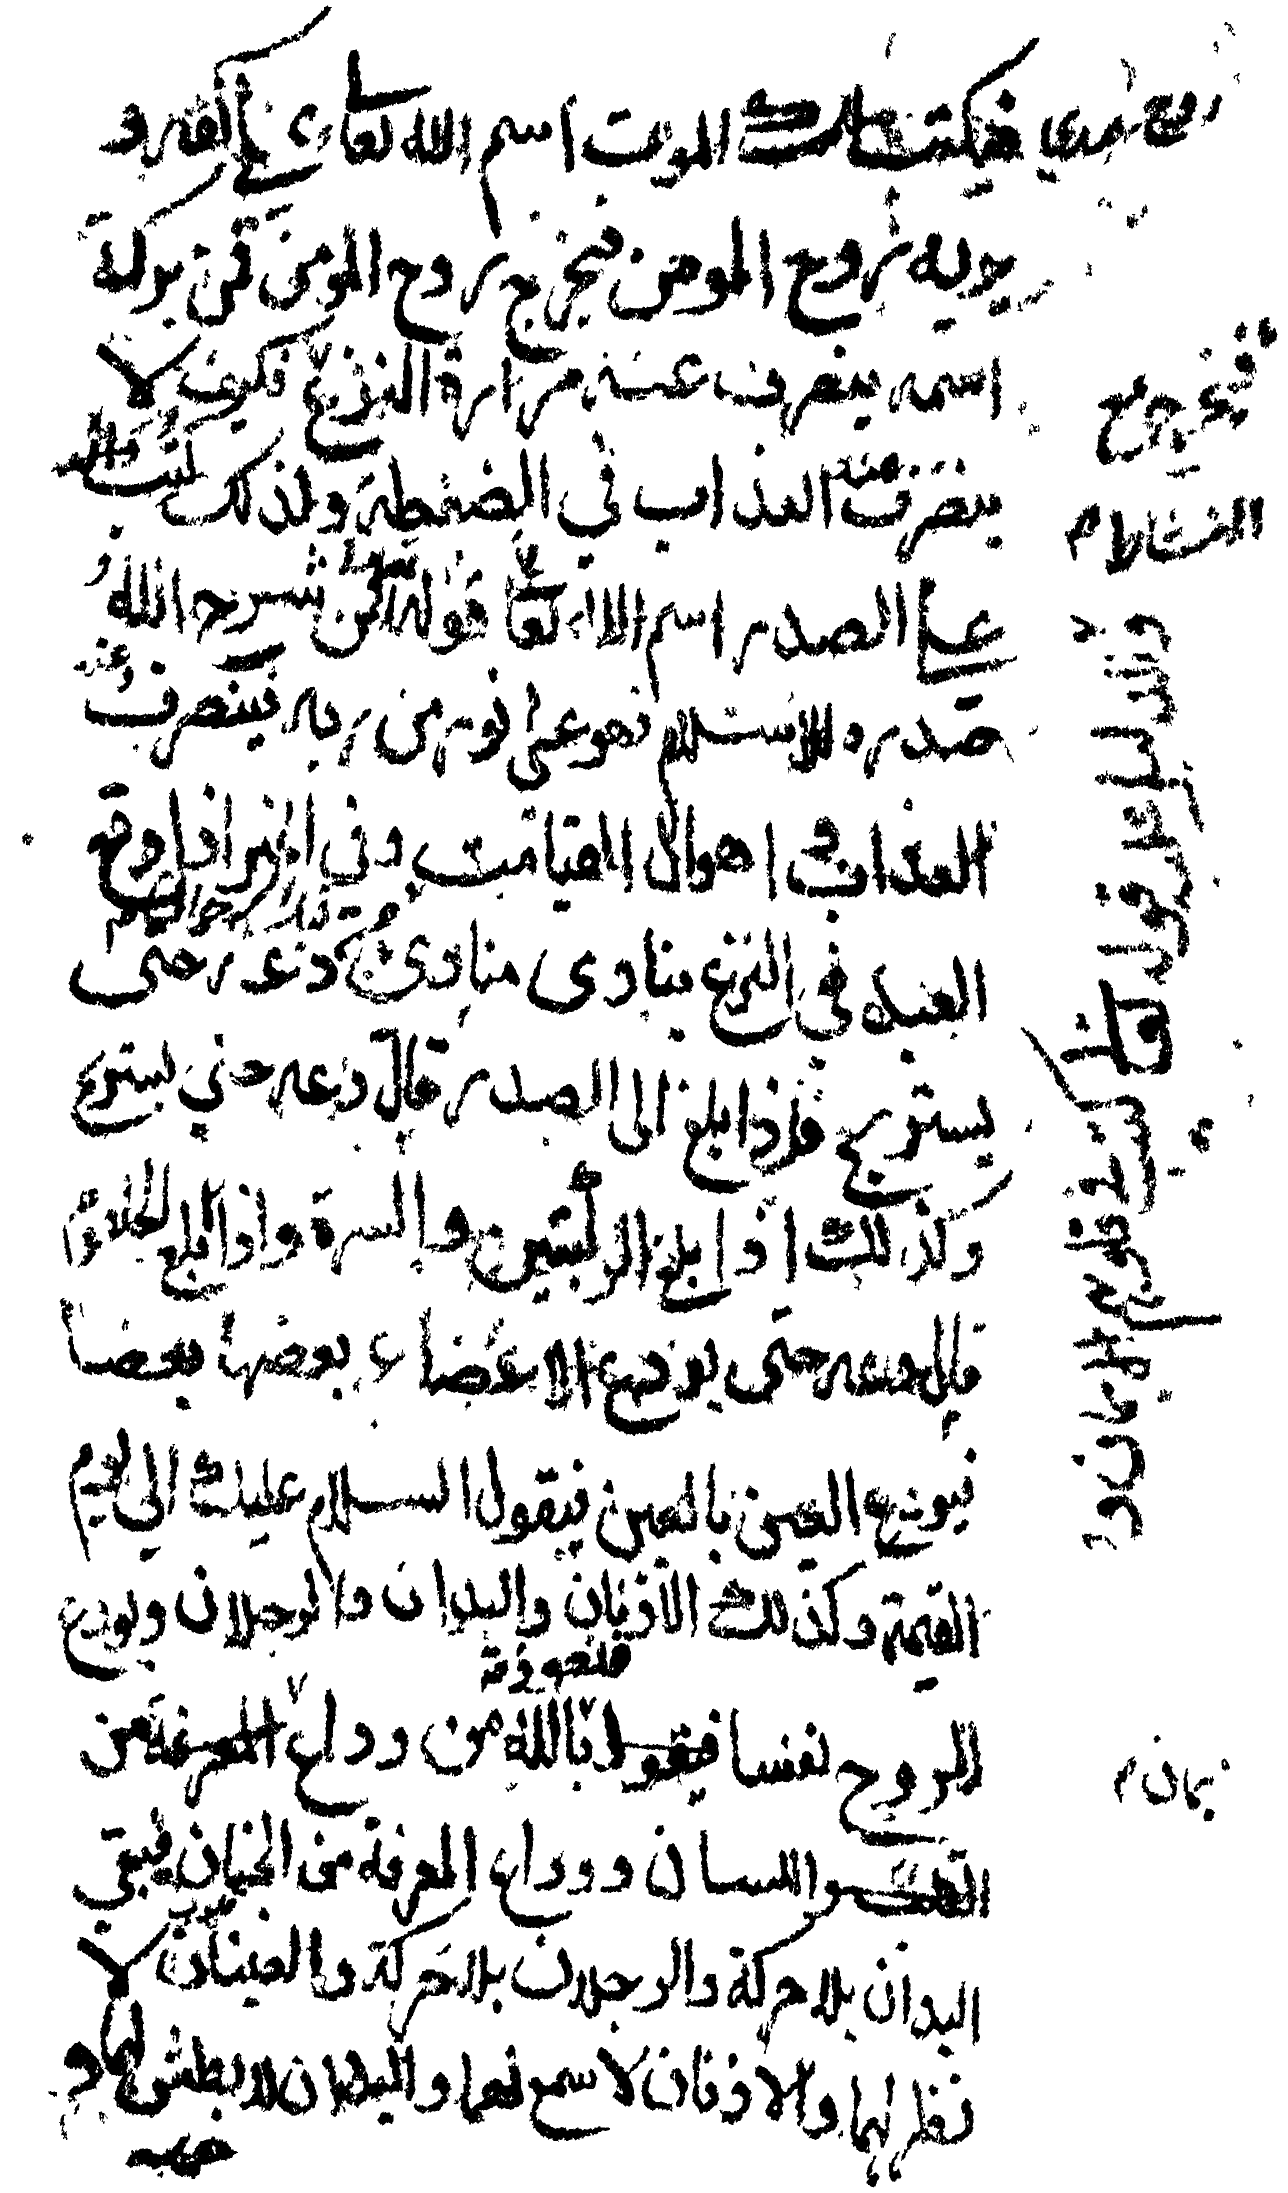 روح عبدي فيكتب ملك الموت اسم الله تعالى على كفه و
يريه روح المومن فيخرج روح المومن من بركة
اسمه ينصرف عنه مرارة النزع فكيف لا
ينصرف عنه العذاب في الضغطة ولذلك كتب الله
على الصدر اسم الله تعا قوله تعالى افمن شرح الله
صدره للاسلام فهو على نور من ربه فينصرف عنه
العذاب و اهوال القيامت وفي الخبر اذا وقع
العبد في النزع ينادى منادى من قبل الرحمن دعه حتى
يستريح فاذا بلغ الى الصدر قال دعه حتي يستريح
وكذلك اذا بلغ الركبتين والسرة واذا بلغ الحلقوم
قال دعه حتى يودع الاعضاء بعضها بعضا
فيودع العين بالعين فيقول السلام عليك الى يوم
القيمة وكذلك الاذنان واليدان والرجلان ويودع
الروح نفسا فنعوذ بالله من وداع المعرفة من
القلب واللسان ووداع المعرفة من الجنان فيبقي
اليدان بلا حركة والرجلان بلا حركة والعينان لا
نظر لهما والاذنان لا سمع لهما واليدان لا بطش لهما و
فيخرج روح
النشاط م
يمان م